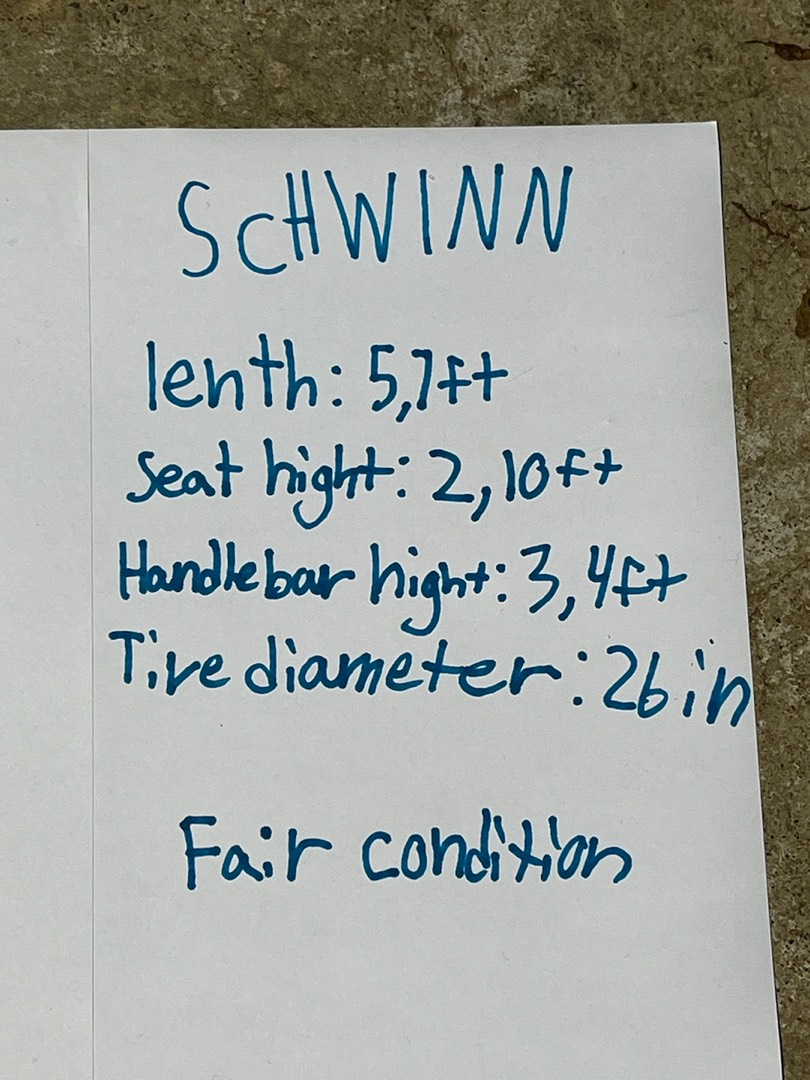 SCHWINN
lenth: 5,7ft
Seat hight: 2,10ft
Handlebar hight: 3,4ft
Tire diameter: 26in
Fair condition